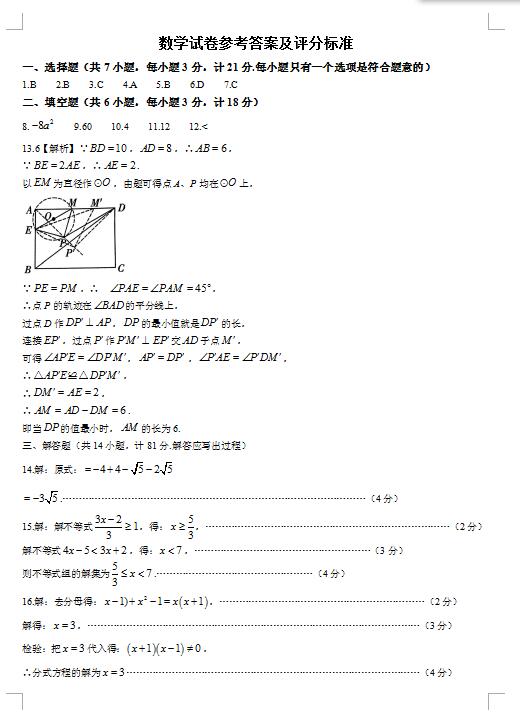 数学试卷参考答案及评分标准
一、选择题（共 7 小题，每小题 3 分，计 21 分.每小题只有一个选项是符合题意的）
1.B 2.B 3.C 4.A 5.B 6.D 7.C
二、填空题（共 6 小题，每小题 3 分，计 18 分）
8. −8a² 9.60 10.4 11.12 12.<
13.6【解析】∵BD=10，AD=8，∴AB=6，
∵BE=2AE，∴AE=2.
以 EM 为直径作⊙O，由题可得点 A、P 均在⊙O 上，
A M M′ D
O
E
P
P′
B C
∵PE=PM，∴ ∠PAE=∠PAM=45°，
∴点 P 的轨迹在∠BAD的平分线上，
过点 D 作DP′⊥AP，DP 的最小值就是DP′的长，
连接EP′，过点P′作P′M′⊥EP′交AD于点M′，
可得∠AP′E=∠DP′M′，AP′=DP′，∠P′AE=∠P′DM′，
∴△AP′E≌△DP′M′，
∴DM′=AE=2，
∴AM=AD−DM=6.
即当DP的值最小时，AM 的长为 6.
三、解答题（共 14 小题，计 81 分.解答应写出过程）
14.解：原式：=−4+4−√5−2√5
=−3√5.……（4 分）
15.解：解不等式(3x−2)/3≥1，得：x≥5/3，……（2 分）
解不等式4x−5<3x+2，得：x<7，……（3 分）
则不等式组的解集为5/3≤x<7.……（4 分）
16.解：去分母得：x−1)+x²−1=x(x+1)，……（2 分）
解得：x=3，……（3 分）
检验：把x=3代入得：(x+1)(x−1)≠0，
∴分式方程的解为x=3……（4 分）